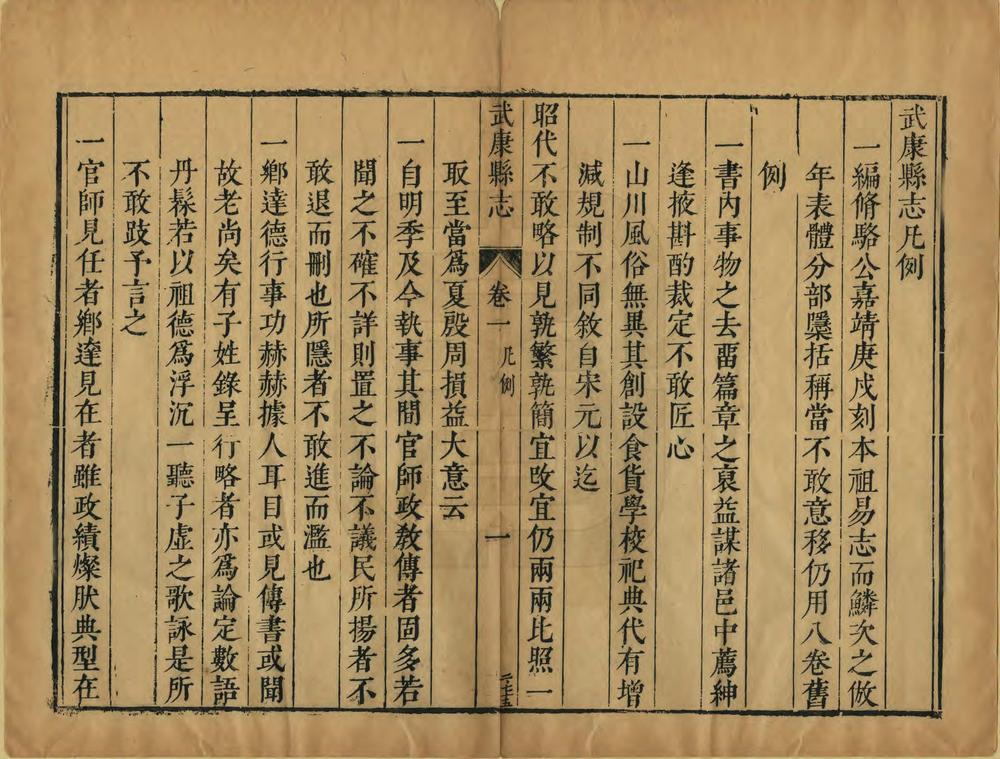 武康縣志凡例
一編脩駱公嘉靖庚戌刻本祖易志而鱗次之倣
年表體分部櫽括稱當不敢意移仍用八卷舊
例
一書內事物之去畱篇章之裒益謀諸邑中薦紳
逢掖斟酌裁定不敢匠心
一山川風俗無異其創設食貨學校祀典代有增
減規制不同敘自宋元以迄
昭代不敢略以見孰繁孰簡宜攺宜仍兩兩比照一
武康縣志 卷一 凡例 一
取至當爲夏殷周損益大意云
一自明季及今執事其間官師政教傳者固多若
聞之不確不詳則置之不論不議民所揚者不
敢退而刪也所隱者不敢進而濫也
一鄉達德行事功赫赫據人耳目或見傳書或聞
故老尚矣有子姓錄呈行略者亦爲論定數語
丹鬃若以祖德爲浮沉一聽子虛之歌詠是所
不敢跂予言之
一官師見任者鄉達見在者雖政績燦肰典型在